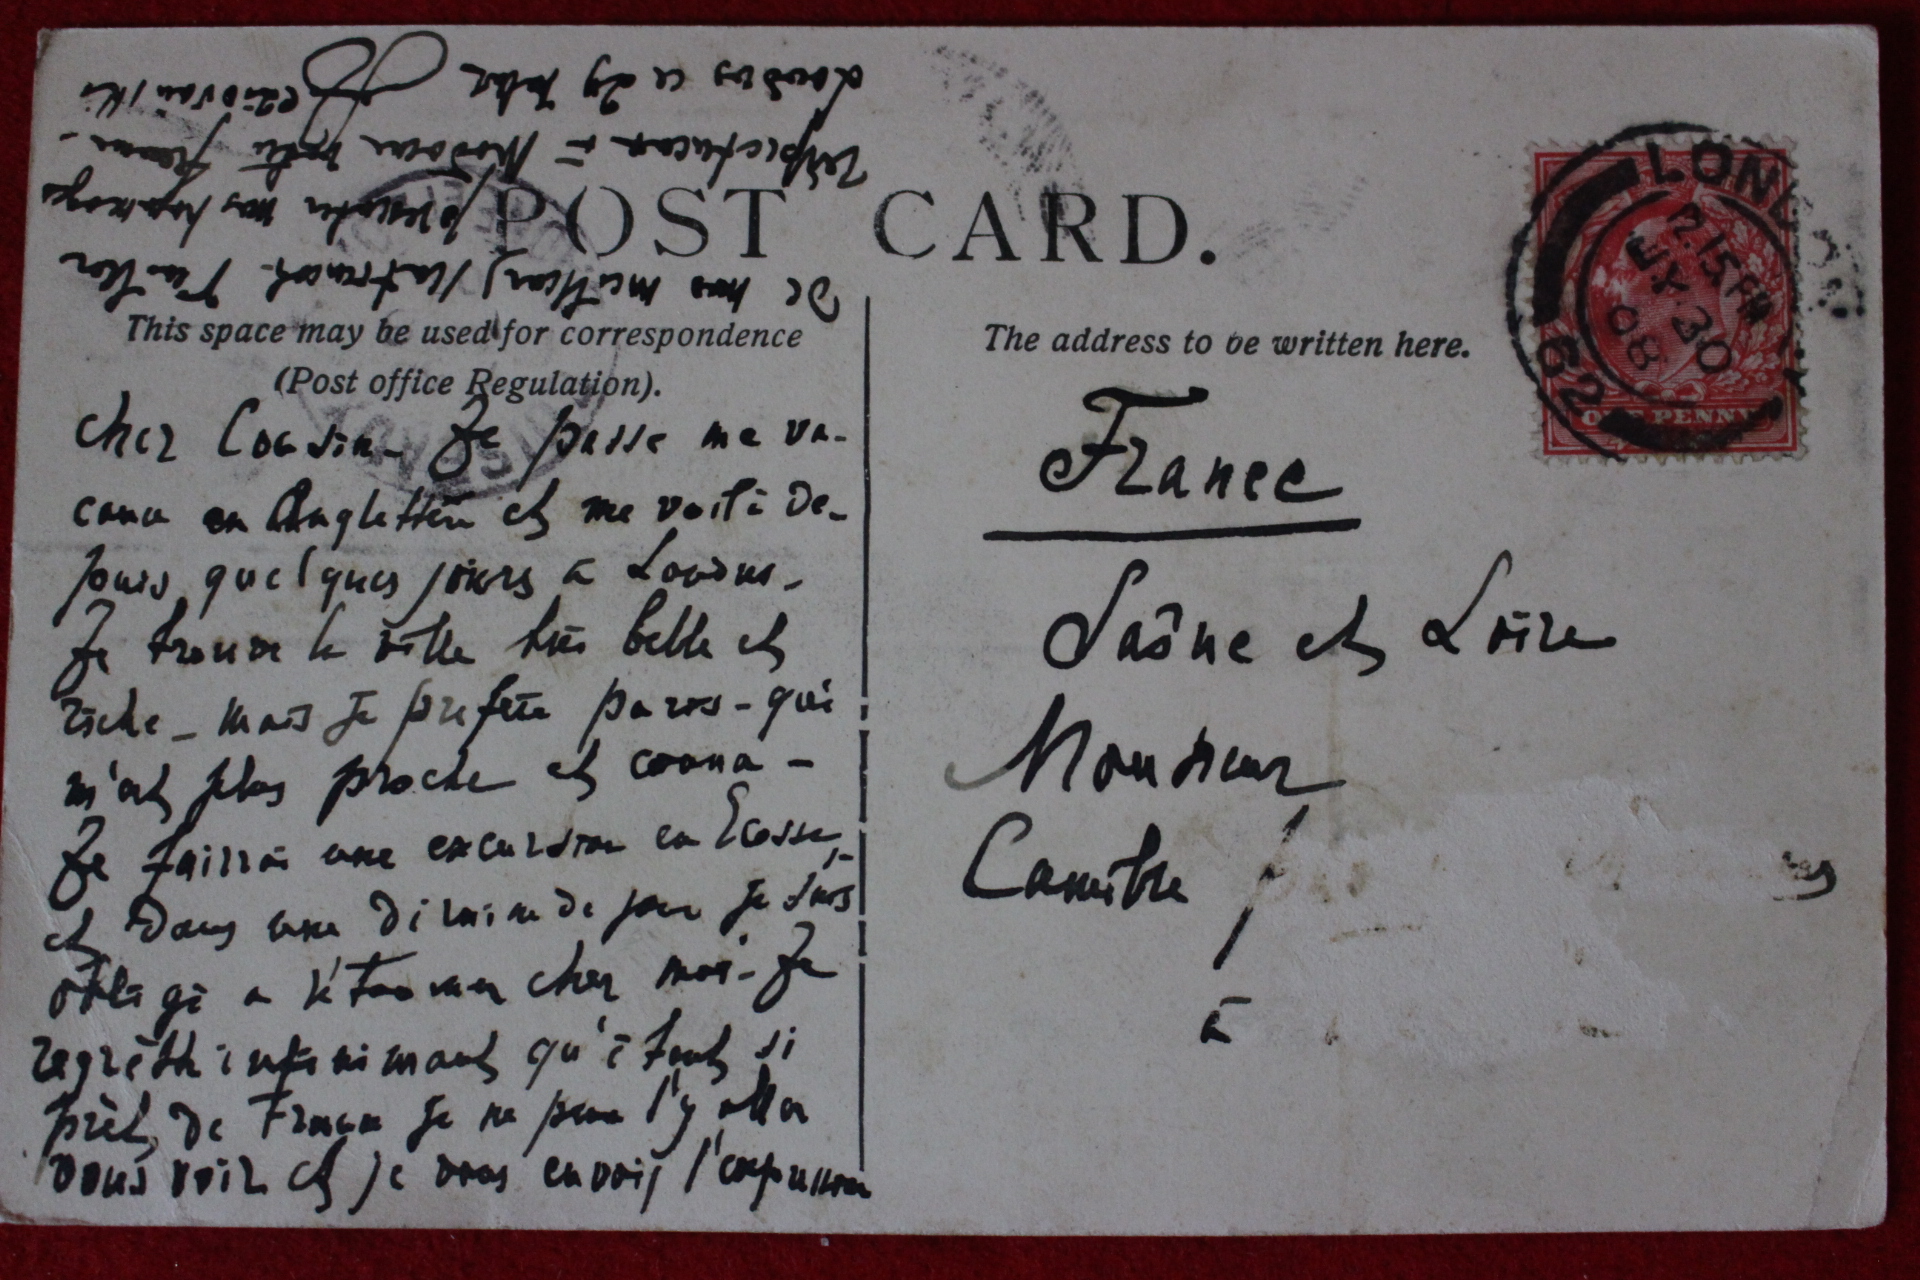 POST CARD.
This space may be used for correspondence
(Post office Regulation).
The address to be written here.
cher Cousin - Je passe me va-
cance en Angletterre et me voilà de-
puis quelques jours à Londres -
Je trouve la ville très belle et
riche - mais je prefère paris - qui
m'est plus proche et connu -
Je fairrai une excursion en Ecosse,-
et dans une dizaine de jour je suis
obligé a retourner cher moi - Je
regrette infiniment qu'étant si
prêt de France je ne peux l'y aller
vous voir et je vous envoij l'expression
de mes meilleurs sentiments.
presenter mes hommages
respectueux à Madame votre femme -
Londres ce 29
France
Saône et Loire
Monsieur
Camille
à
LONDON
2.15 PM
EX. 30
08
62
ONE PENNY